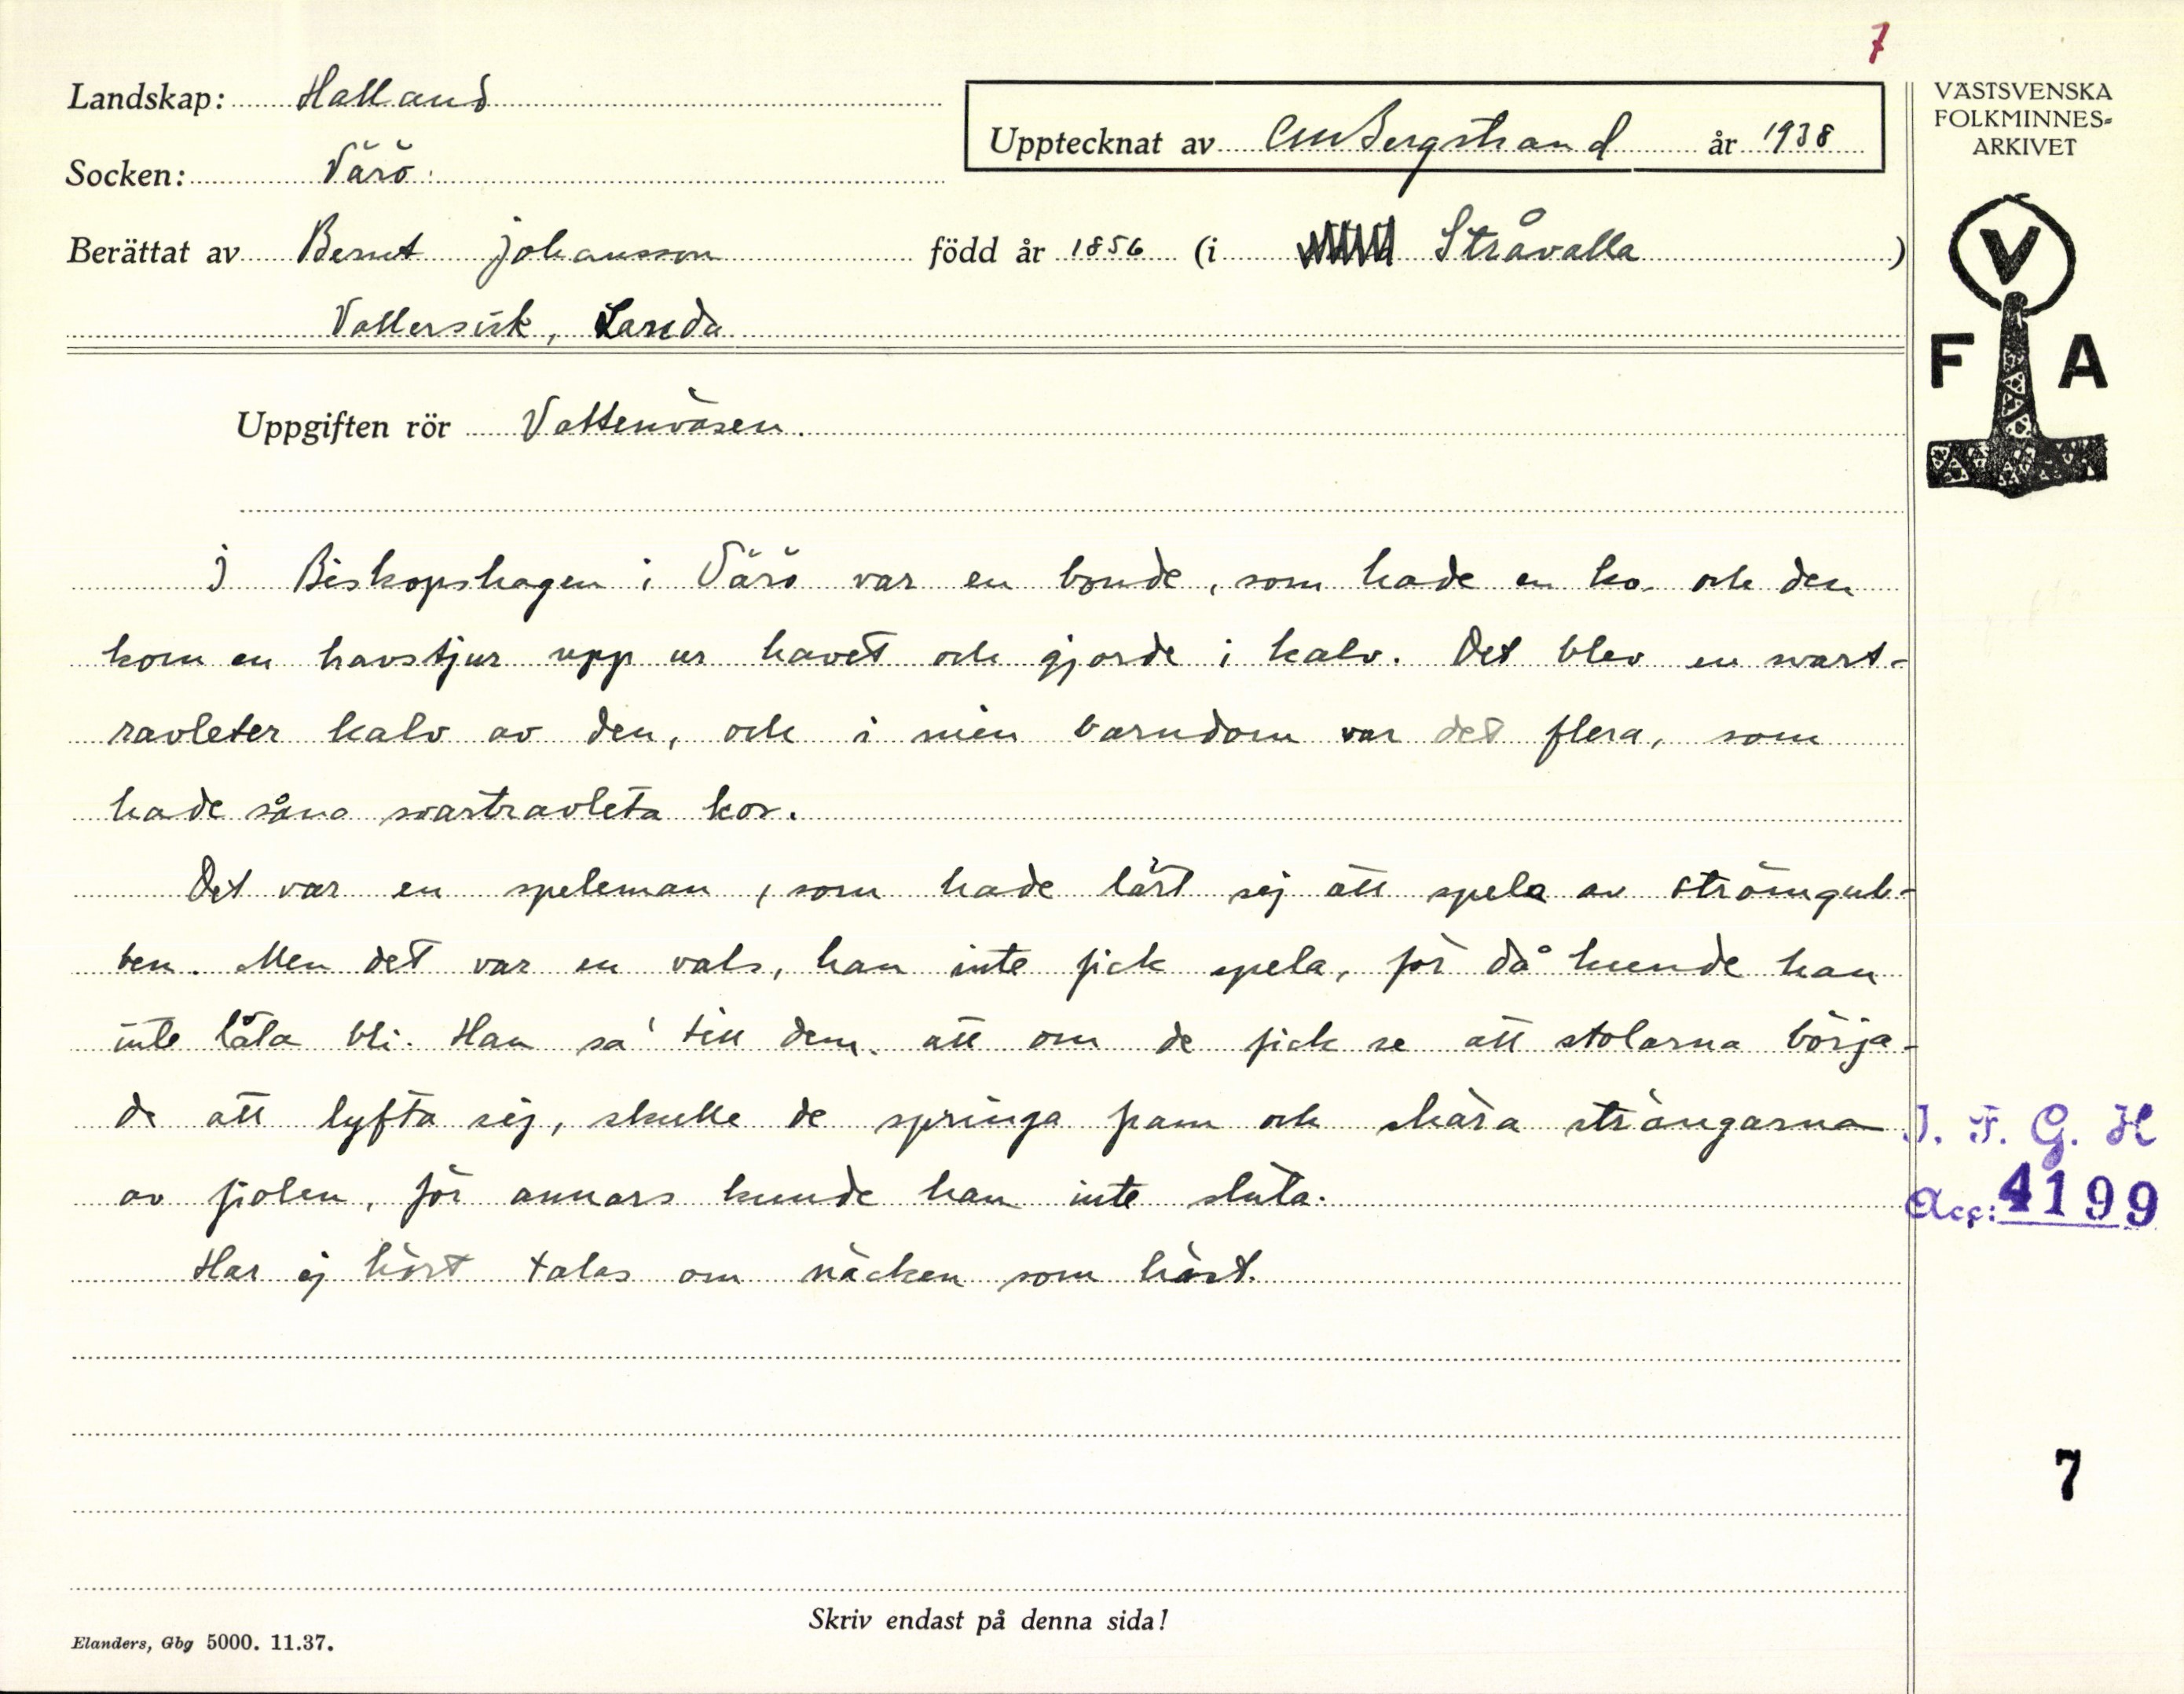 7
Landskap: Halland
Upptecknat av CMBergstrand år 1938
Socken: Värö
Berättat av Bernt Johansson född år 1856 (i Stråvalla )
Vallersvik, Landa
VÄSTSVENSKA
FOLKMINNES-
ARKIVET
V
F A
Uppgiften rör Vattenväsen.
I Biskopshagen i Värö var en bonde, som hade en ko och den
kom en havstjur upp ur havet och gjorde i kalv. Det blev en svart-
ravleter kalv av den, och i min barndom var det flera, som
hade såna svartravleta kor.
Det var en speleman, som hade lärt sej att spela av strömgub-
ben. Men det var en vals, han inte fick spela, för då kunde han
inte låta bli. Han sa' till dem att om de fick se att stolarna börja-
de att lyfta sig, skulle de springa fram och skära strängarna
av fiolen, för annars kunde han inte sluta.
Har ej hört talas om näcken som häst.
I. F. G. H
Acc: 4199
7
Skriv endast på denna sida!
Elanders, Gbg 5000. 11.37.